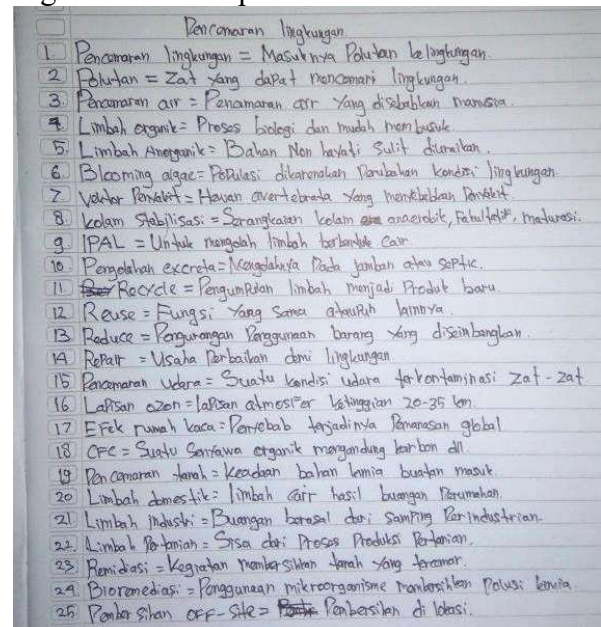 Pencemaran lingkungan
1 Pencemaran lingkungan = Masuknya Polutan ke lingkungan.
2 Polutan = Zat yang dapat mencemari lingkungan.
3. Pencamaran air = Penamaran air Yang disebabkan manusia.
4 Limbah organik = Proses biologi dan mudah membusuk.
5. Limbah Anorganik = Bahan Non hayati Sulit diuraikan.
6 Blooming algae = Populasi dikarenakan Perubahan kondisi lingkungan.
7. Vektor Penyakit = Hewan avertebrata Yang menyebabkan Penyakit.
8 Kolam Stabilisasi = Serangkaian kolam anaerobik, Fakultatif, maturasi.
9 IPAL = Untuk mengolah limbah berbentuk Cair
10. Pengolahan excreta = Mengolahnya Pada jamban atau septic.
11 Recycle = Pengumpulan limbah menjadi Produk baru.
12 Reuse = Fungsi Yang Sama ataupun lainnya.
13 Reduce = Pengurangan Penggunaan barang Yang diseimbangkan.
14 Repair = Usaha Perbaikan demi lingkungan.
15 Pencemaran Udara = Suatu kondisi udara terkontaminasi zat-zat.
16 Lapisan ozon = lapisan atmosfer ketinggian 20-35 km.
17 Efek rumah kaca = Penyebab terjadinya Pemanasan global
18 CFC = Suatu Senyawa organik mengandung karbon dll.
19 Pencemaran tanah = Keadaan bahan kimia buatan masuk.
20 Limbah domestik = limbah cair hasil buangan Perumahan.
21 Limbah industri = Buangan berasal dari samping Perindustrian.
22. Limbah Pertanian = Sisa dari Proses Produksi Pertanian.
23. Remidiasi = Kegiatan membersihkan tanah yang tercemar.
24 Bioremediasi = Penggunaan mikroorganisme membersihkan Polusi kimia.
25 Pembersihan OFF-Site = Pembersihan di lokasi.